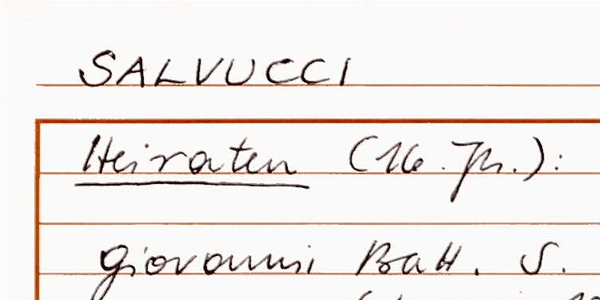 SALVUCCI
Heiraten (16. Jh.):
Giovanni Batt. S.